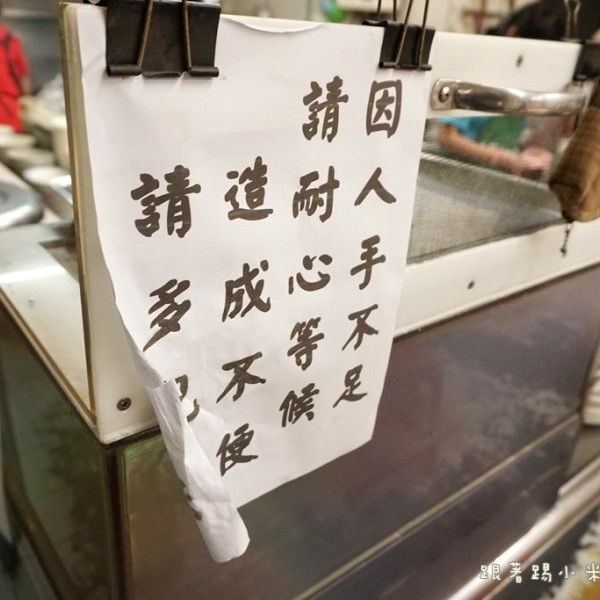 因人手不足
請耐心等候
造成不便
請多見
跟著踢小米